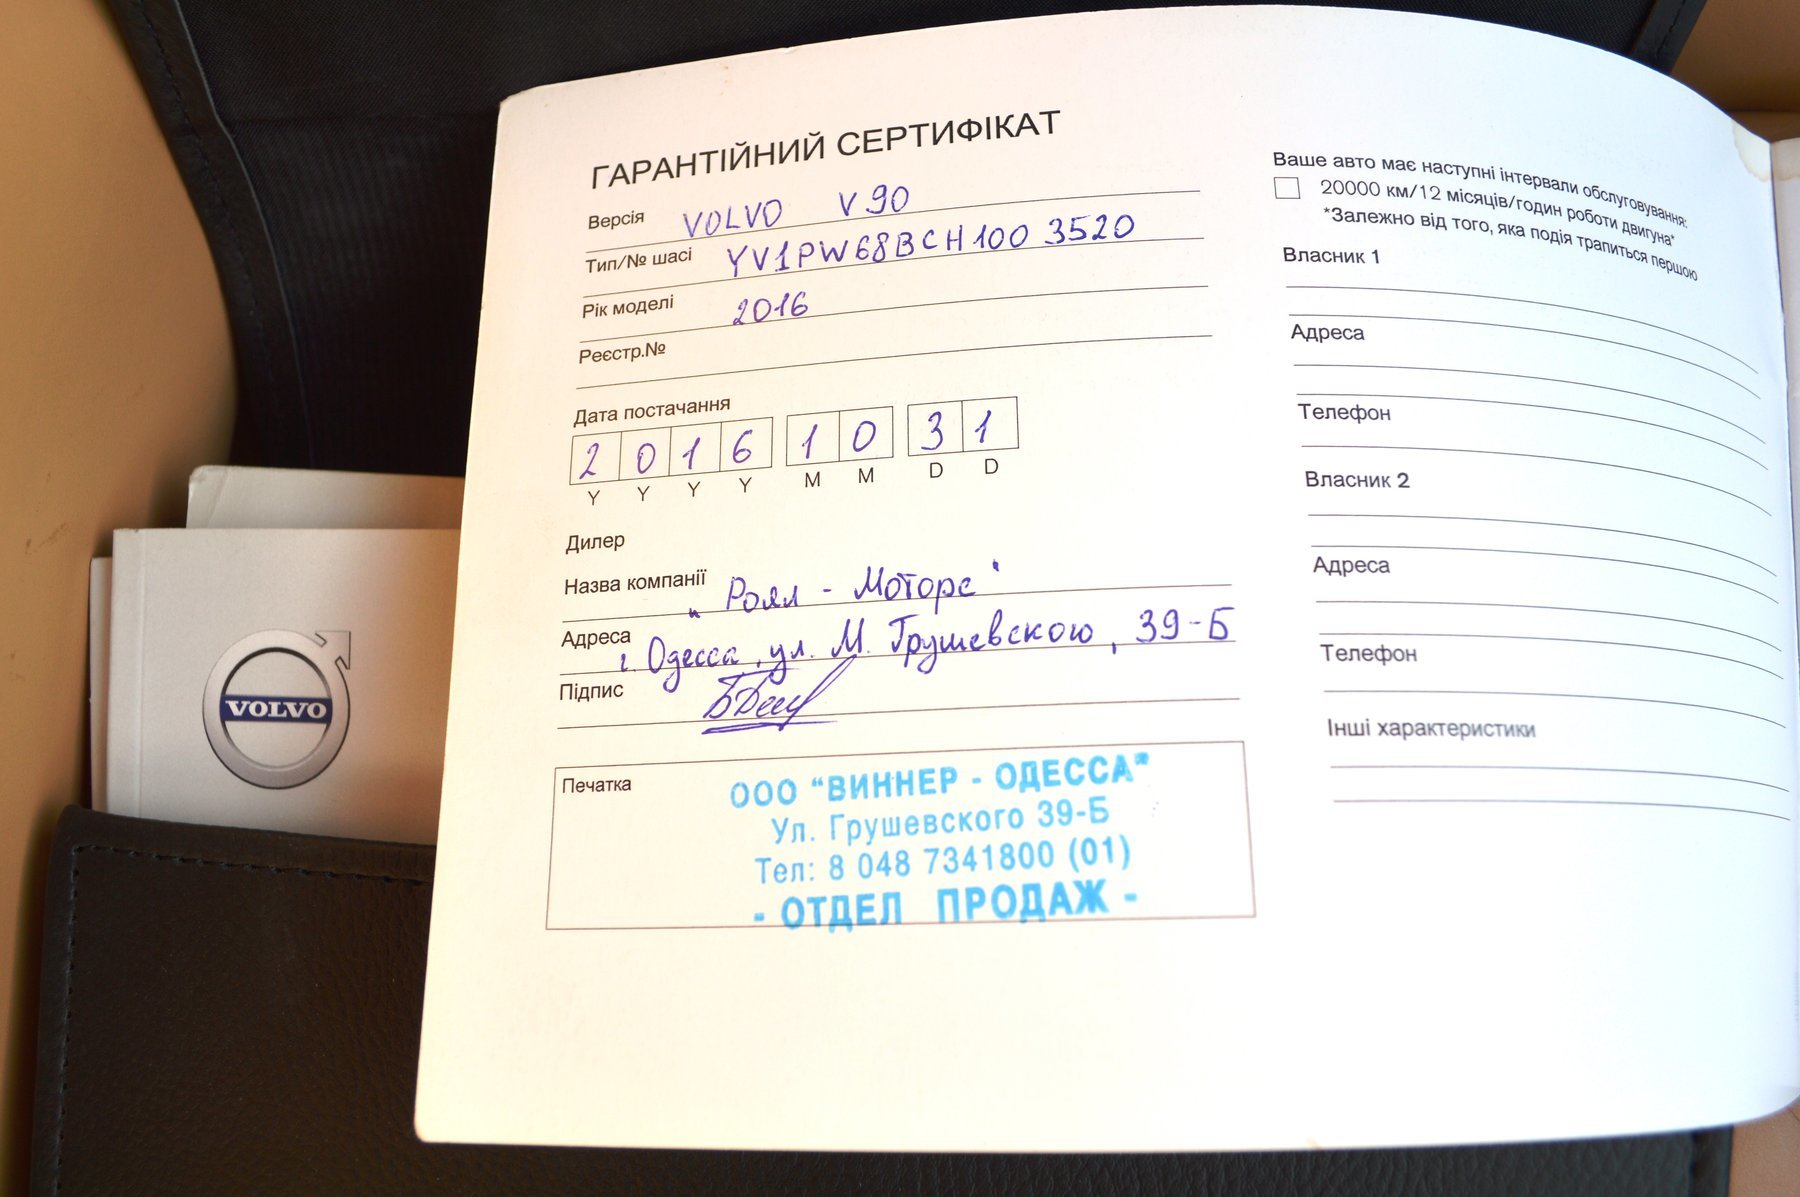 ГАРАНТІЙНИЙ СЕРТИФІКАТ
Версія VOLVO V90
Тип/№ шасі YV1PW68BCH1003520
Рік моделі 2016
Реєстр.№
Дата постачання
2 0 1 6 1 0 3 1
Y Y Y Y M M D D
Дилер
Назва компанії "Роял - Моторс"
Адреса г. Одесса, ул. М. Грушевского, 39-Б
Підпис
Печатка
ООО "ВИННЕР - ОДЕССА"
Ул. Грушевского 39-Б
Тел: 8 048 7341800 (01)
- ОТДЕЛ ПРОДАЖ -
Ваше авто має наступні інтервали обслуговування:
20000 км/12 місяців/годин роботи двигуна*
*Залежно від того, яка подія трапиться першою
Власник 1
Адреса
Телефон
Власник 2
Адреса
Телефон
Інші характеристики
VOLVO